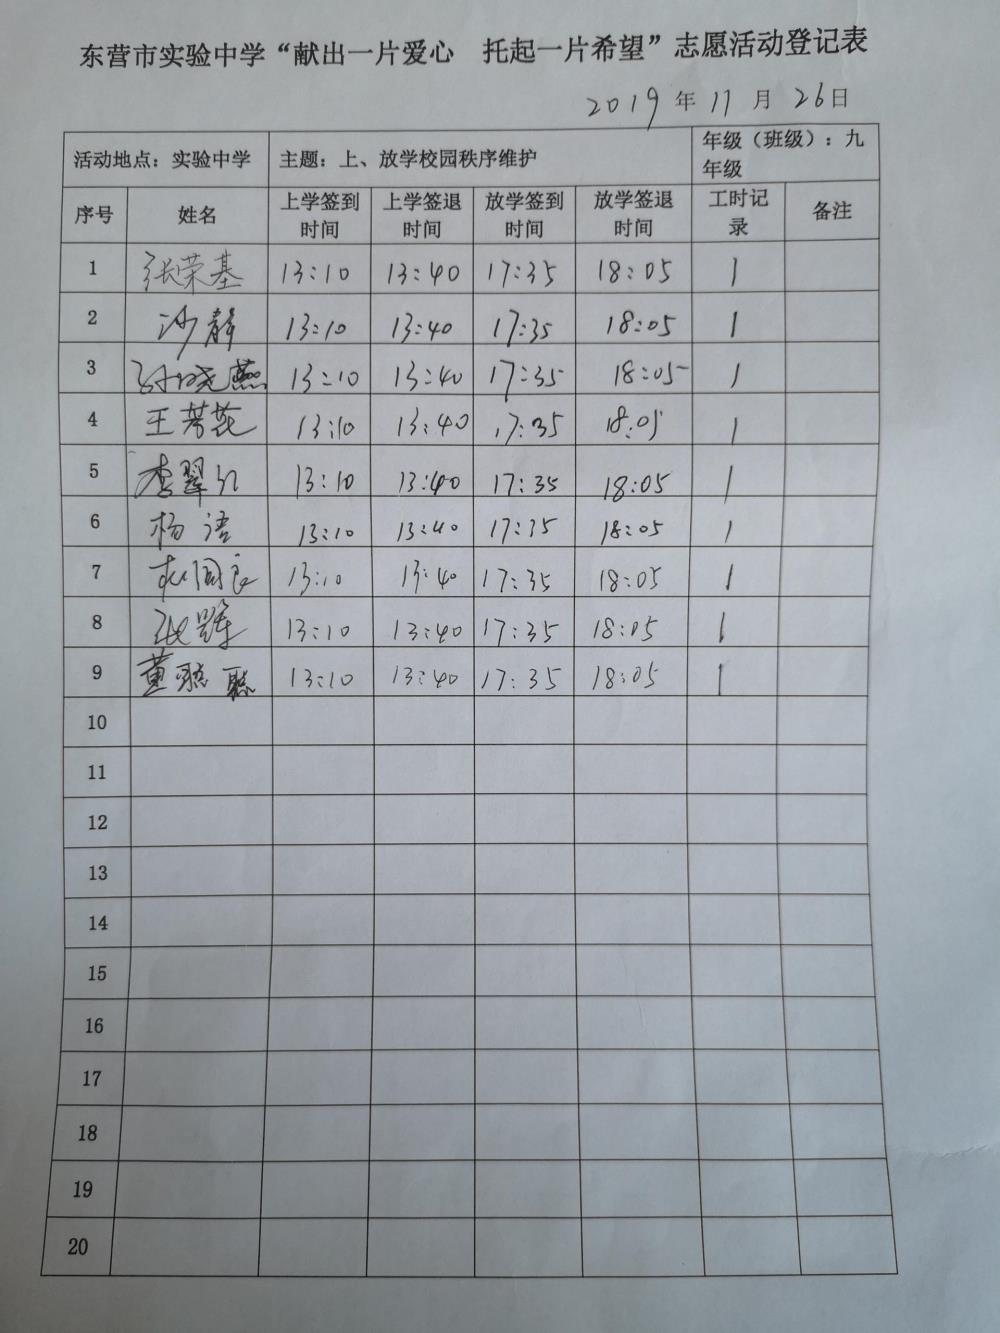 东营市实验中学“献出一片爱心 托起一片希望”志愿活动登记表
2019年11月26日
活动地点：实验中学 主题：上、放学校园秩序维护 年级（班级）：九年级
序号 姓名 上学签到时间 上学签退时间 放学签到时间 放学签退时间 工时记录 备注
1 张荣基 13:10 13:40 17:35 18:05 1
2 沙静 13:10 13:40 17:35 18:05 1
3 孙晓燕 13:10 13:40 17:35 18:05 1
4 王芳花 13:10 13:40 17:35 18:05 1
5 李翠红 13:10 13:40 17:35 18:05 1
6 杨洁 13:10 13:40 17:35 18:05 1
7 13:10 13:40 17:35 18:05 1
8 13:10 13:40 17:35 18:05 1
9 黄聪聪 13:10 13:40 17:35 18:05 1
10
11
12
13
14
15
16
17
18
19
20